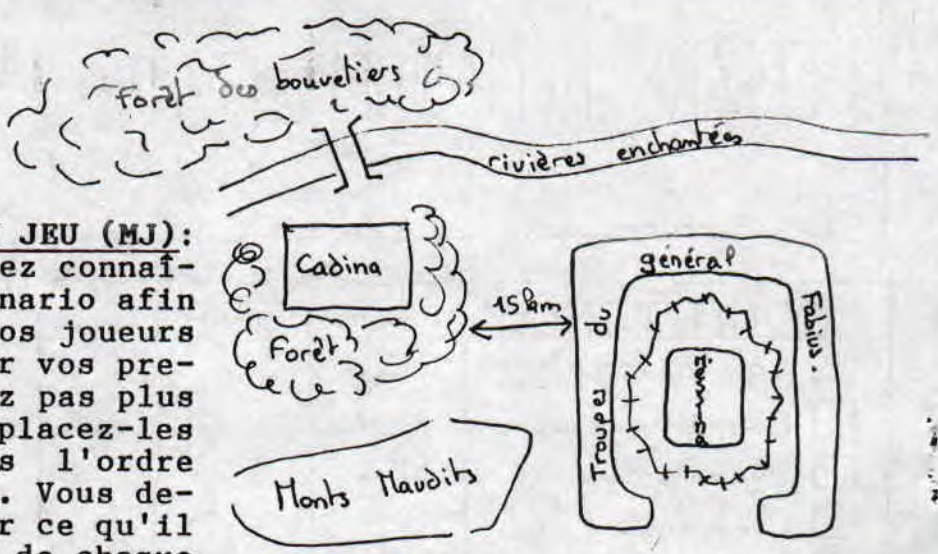 Forêt des bouvetiers
rivières enchantées
JEU (MJ):
ez connaî-
nario afin
os joueurs
r vos pre-
z pas plus
placez-les
s l'ordre
. Vous de-
r ce qu'il
de chaque
Cadina
Forêt
15 km
Troupes du général Fabius.
Monts Maudits